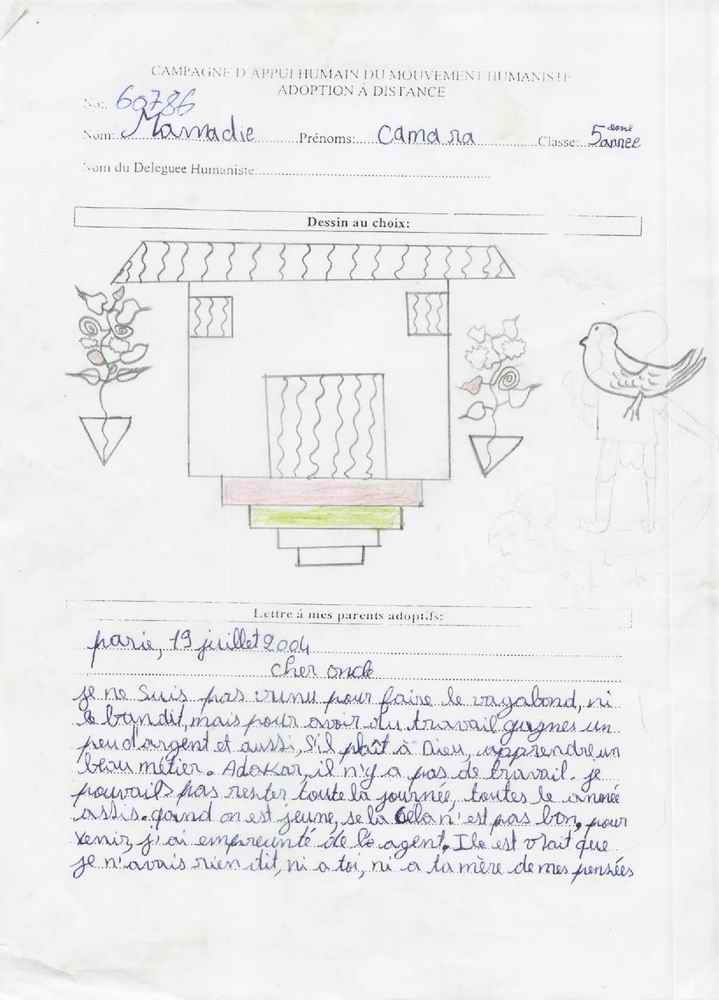 CAMPAGNE D'APPUI HUMAIN DU MOUVEMENT HUMANISTE
ADOPTION À DISTANCE
No: 60786
Nom: Mamadie Prénoms: Camara Classe: 5eme année
Nom du Deleguee Humaniste
Dessin au choix:
Lettre á mes parents adoptifs:
parie, 19 juillet 2004
cher oncle
je ne Suis pas vunu pour faire le vagabond, ni
le bandit, mais pour avoir du travail gagnes un
peu d'argent et aussi, S'il plaît à Dieu, apprendre un
beau métier. Adakar, il n'y a pas de travail. je
pouvais pas rester toute la journée, toutes le année
assis. quand on est jeune, se la cela n'est pas bon, pour
venir, j'ai empreunté de l'agent. Ile est vrait que
je n'avais rien dit, ni a toi, ni a ta mère de mes pensées